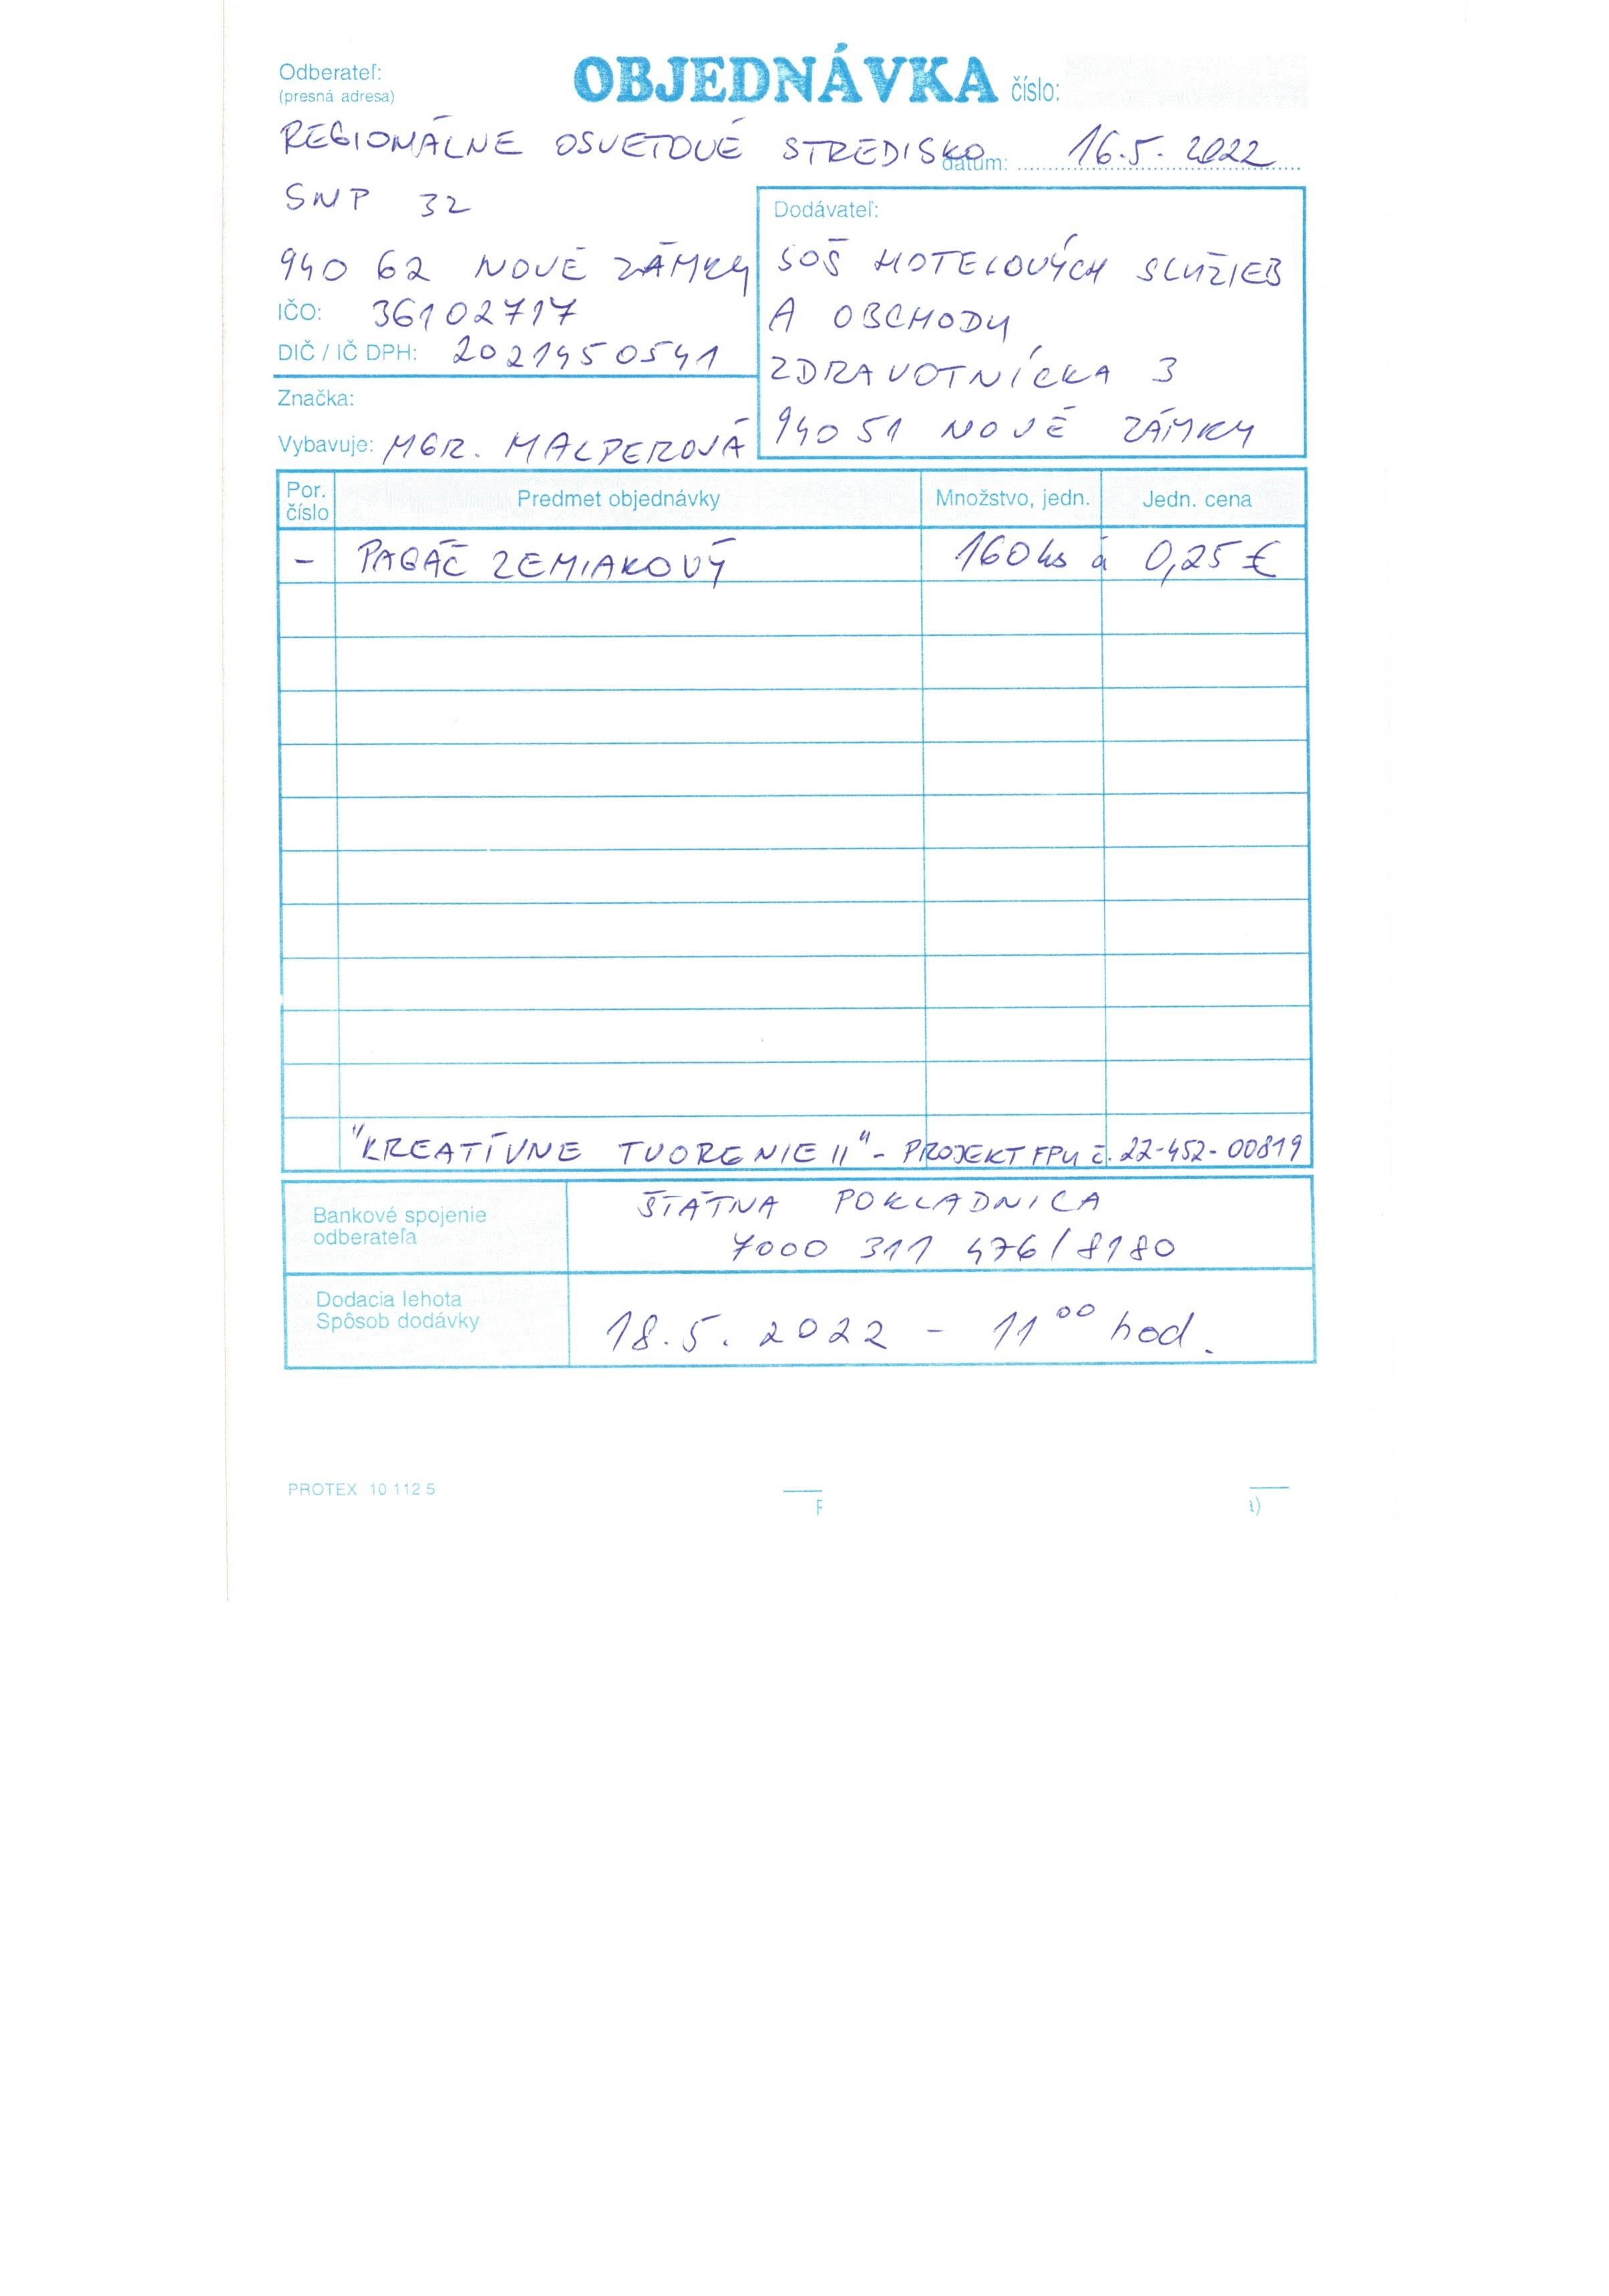 Odberateľ:
(presná adresa)
OBJEDNÁVKA číslo:
REGIONÁLNE OSVETOVÉ STREDISKO
dátum: 16.5. 2022
SNP 32
940 62 NOVÉ ZÁMKY
IČO: 36102717
DIČ / IČ DPH: 2021450541
Značka:
Vybavuje: MGR. MALPEROVÁ
Dodávateľ:
SOŠ HOTELOVÝCH SLUŽIEB
A OBCHODU
ZDRAVOTNÍCKA 3
940 51 NOVÉ ZÁMKY
Por. číslo Predmet objednávky Množstvo, jedn. Jedn. cena
- PAGÁČ ZEMIAKOVÝ 160 ks á 0,25 €
"KREATÍVNE TVORENIE II" - PROJEKT FPU č. 22-452-00819
Bankové spojenie
odberateľa
ŠTÁTNA POKLADNICA
7000 311 476/8180
Dodacia lehota
Spôsob dodávky
18.5. 2022 - 11⁰⁰ hod.
PROTEX 10 112 5